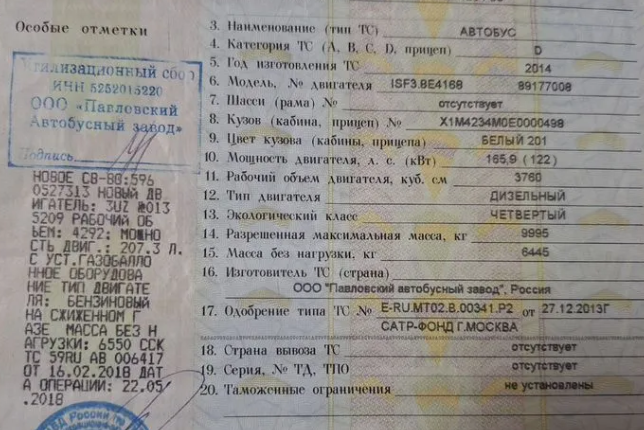 Особые отметки
Утилизационный сбор
ИНН 5252015220
ООО «Павловский
Автобусный завод»
Подпись
НОВОЕ СВ-ВО:596
0527313 НОВЫЙ ДВ
ИГАТЕЛЬ: 3UZ №013
5209 РАБОЧИЙ ОБ
ЬЕМ: 4292: МОЩНО
СТЬ ДВИГ.: 207.3 Л.
С УСТ.ГАЗОБАЛЛО
ННОЕ ОБОРУДОВА
НИЕ ТИП ДВИГАТЕ
ЛЯ: БЕНЗИНОВЫЙ
НА СЖИЖЕННОМ Г
АЗЕ МАССА БЕЗ Н
АГРУЗКИ: 6550 ССК
ТС 59RU АВ 006417
ОТ 16.02.2018 ДАТ
А ОПЕРАЦИИ: 22.05
.2018
ВД России по
3. Наименование (тип ТС) АВТОБУС
4. Категория ТС (А, В, С, D, прицеп) D
5. Год изготовления ТС 2014
6. Модель, № двигателя ISF3.8E4168 89177008
7. Шасси (рама) № отсутствует
8. Кузов (кабина, прицеп) № X1M4234M0E0000498
9. Цвет кузова (кабины, прицепа) БЕЛЫЙ 201
10. Мощность двигателя, л. с. (кВт) 165,9 ( 122)
11. Рабочий объем двигателя, куб. см 3760
12. Тип двигателя ДИЗЕЛЬНЫЙ
13. Экологический класс ЧЕТВЕРТЫЙ
14. Разрешенная максимальная масса, кг 9995
15. Масса без нагрузки, кг 6445
16. Изготовитель ТС (страна)
ООО "Павловский автобусный завод", Россия
17. Одобрение типа ТС № E-RU.MT02.B.00341.P2 от 27.12.2013Г
САТР-ФОНД Г.МОСКВА
18. Страна вывоза ТС отсутствует
19. Серия, № ТД, ТПО отсутствует
20. Таможенные ограничения не установлены